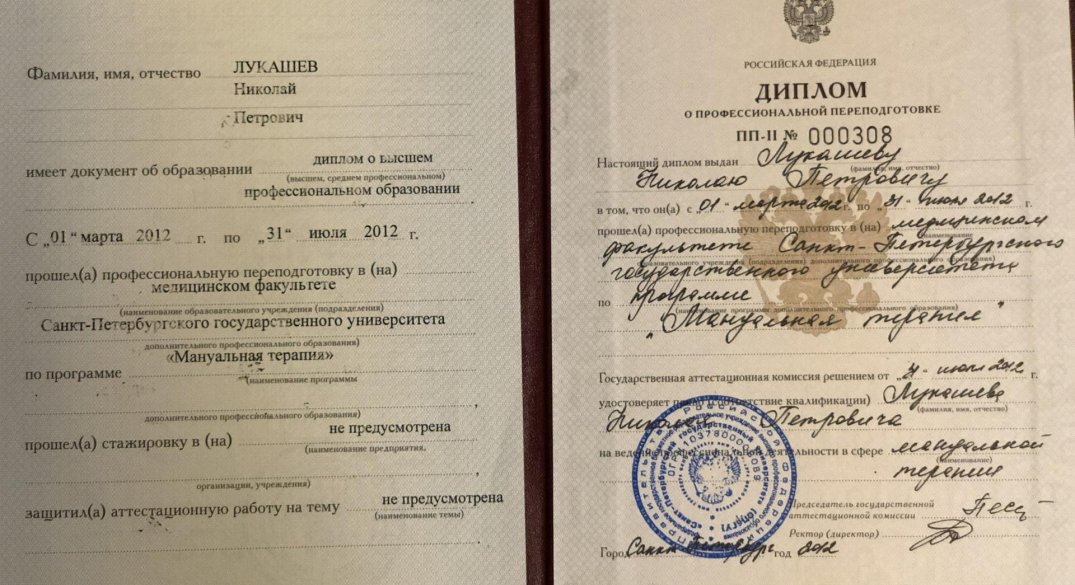 Фамилия, имя, отчество ЛУКАШЕВ
Николай
Петрович
имеет документ об образовании диплом о высшем
(высшем, среднем профессиональном)
профессиональном образовании
С „01“ марта 2012 г. по „31“ июля 2012 г.
прошел(а) профессиональную переподготовку в (на)
медицинском факультете
(наименование образовательного учреждения (подразделения)
Санкт-Петербургского государственного университета
дополнительного профессионального образования)
«Мануальная терапия»
по программе
(наименование программы
дополнительного профессионального образования)
не предусмотрена
прошел(а) стажировку в (на)
(наименование предприятия,
организации, учреждения)
защитил(а) аттестационную работу на тему не предусмотрена
(наименование темы)
РОССИЙСКАЯ ФЕДЕРАЦИЯ
ДИПЛОМ
О ПРОФЕССИОНАЛЬНОЙ ПЕРЕПОДГОТОВКЕ
ПП-II № 000308
Настоящий диплом выдан Лукашеву
(фамилия, имя, отчество)
Николаю Петровичу
в том, что он(а) с „01“ марта 2012 г. по „31“ июля 2012 г.
прошел(а) профессиональную переподготовку в (на) медицинском
факультете Санкт-Петербургского
образовательного учреждения (подразделения) дополнительного профессионального образования)
государственного университета
по программе
(наименование программы дополнительного профессионального образования)
„Мануальная терапия“
Государственная аттестационная комиссия решением от „31“ июля 2012 г.
удостоверяет квалификации) Лукашева
(фамилия, имя, отчество)
Николая Петровича
на ведение профессиональной деятельности в сфере мануальной
(наименование)
терапии
Председатель государственной
аттестационной комиссии
Ректор (директор)
Город Санкт-Петербург год 2012